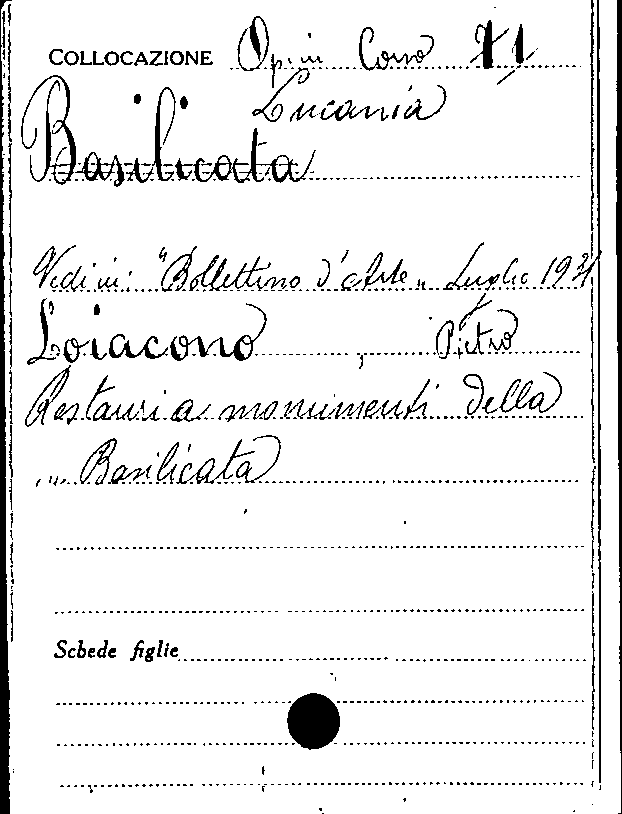 COLLOCAZIONE Op. in Corso 71
Lucania
Basilicata
Vedi in: "Bollettino d'Arte„ Luglio 1931
Loiacono, Pietro
Restauri a monumenti della
Basilicata
Schede figlie